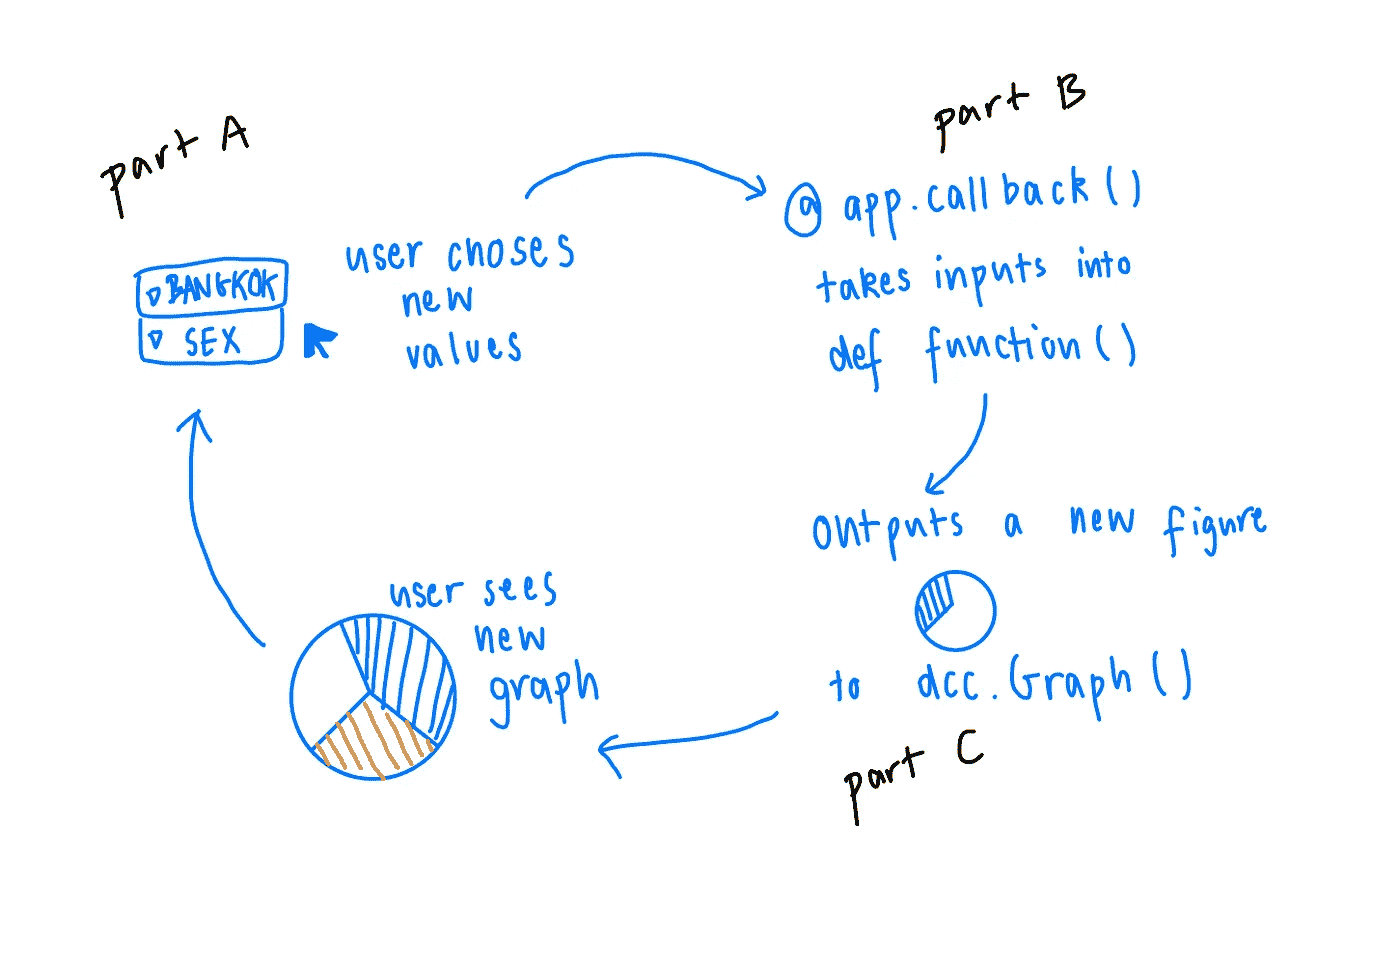 part A
▽ BANGKOK
▽ SEX
user choses
new
values
part B
@ app.callback()
takes inputs into
def function()
outputs a new figure
to dcc.Graph()
part C
user sees
new
graph